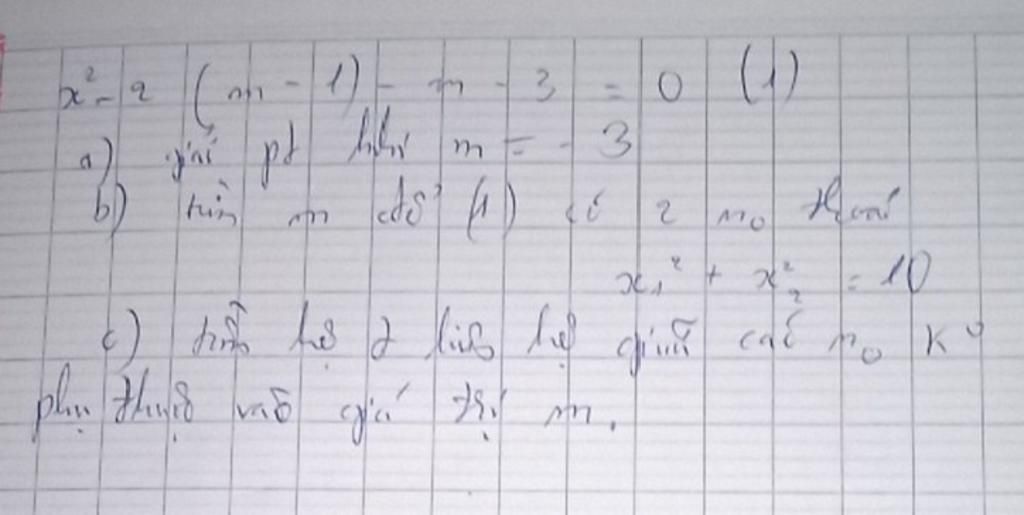 x² - 2 (m - 1) - m - 3 = 0 (1)
a) giải pt khi m = - 3
b) tìm m để (1) có 2 no thoả
x₁² + x₂² = 10
c) tìm hệ t liên hệ giữa các no ko
phụ thuộc vào giá trị m.